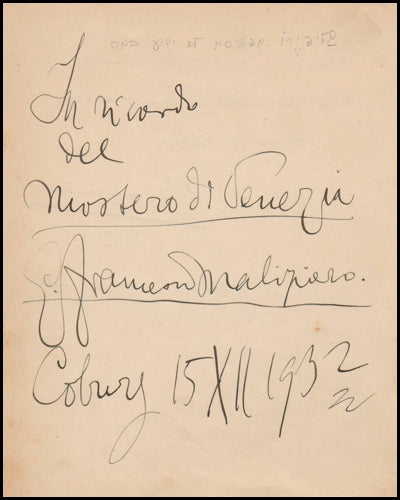 In ricordo
del
Mistero di Venezia
G. Francesco Malipiero.
Coburg 15 XII 1932